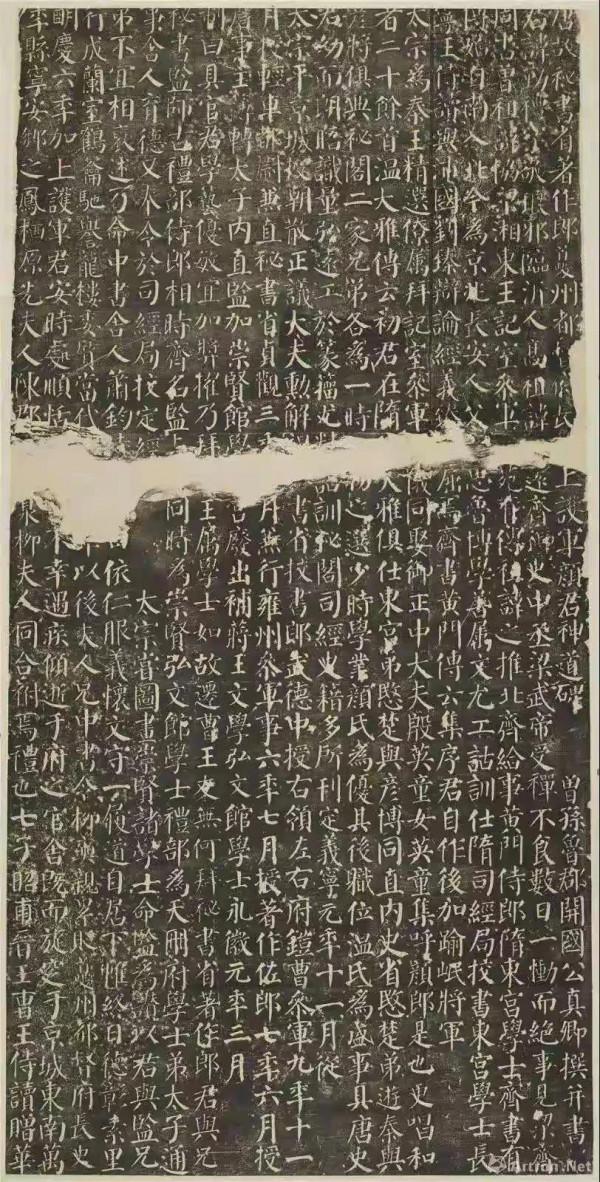 唐故秘書省著作郎夔州都督府長上護軍顏君神道碑 曾孫魯郡開國公真卿撰并書
君諱勤禮字敬琅邪臨沂人高祖諱遠齊御史中丞梁武帝受禪不食數日一慟而絕事見梁齊
周書曾祖諱協梁湘東王記室參軍苑有傳祖諱之推北齊給事黃門侍郎隋東宮學士齊書有
傳始自南入北今為京兆長安人父思魯博學善屬文尤工詁訓仕隋司經局校書東宮學士長
寧王侍讀與沛國劉臻辯論經義臻屈焉齊書黃門傳云集序君自作後加踰岷將軍
太宗為秦王精選僚屬拜記室參軍儀同娶御正中大夫殷英童女英童集呼顏郎是也更唱和
者二十餘首溫大雅傳云初君在隋大雅俱仕東宮弟愍楚與彥博同直內史省愍楚弟遊秦與
彥將俱典秘閣二家兄弟各為一時物之選少時學業顏氏為優其後職位溫氏為盛事具唐史
君幼而朗晤識量弘遠工於篆籀尤精詁訓秘閣司經史籍多所刊定義寧元年十一月從
太宗平京城授朝散正議大夫勳解書省校書郎武德中授右領左右府鎧曹參軍九年十一
月授輕車都尉兼直秘書省貞觀三年月兼行雍州參軍事六年七月授著作佐郎七年六月授
詹事主簿轉太子內直監加崇賢館學宮廢出補蔣王文學弘文館學士永徽元年三月
制曰具官君學藝優敏宜加獎擢乃拜王屬學士如故遷曹王友無何拜秘書省著作郎君與兄
秘書監師古禮部侍郎相時齊名監與同時為崇賢弘文館學士禮部為天冊府學士弟太子通
事舍人育德又奉令於司經局校定經太宗嘗圖畫崇賢諸學士命監為讚以君與監兄
弟不宜相褒述乃命中書舍人蕭鈞特曰依仁服義懷文守一履道自居下帷終日德彰素里
行成蘭室鶴籥馳譽龍樓委質當代年以後夫人兄中書令柳奭親累貶夔州都督府長史
明慶六年加上護軍君安時處順恬不幸遇疾傾逝于府之官舍既而旋窆于京城東南萬
年縣寧安鄉之鳳棲原先夫人陳郡泉柳夫人同合祔焉禮也七子昭甫晉王曹王侍讀贈華
Artron.Net